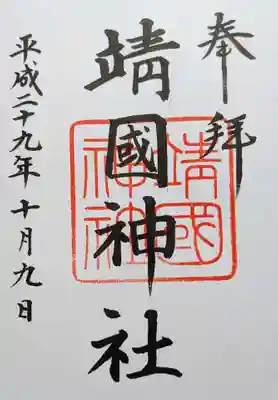 奉拜
靖國神社
靖國
神社
平成二十九年十月九日